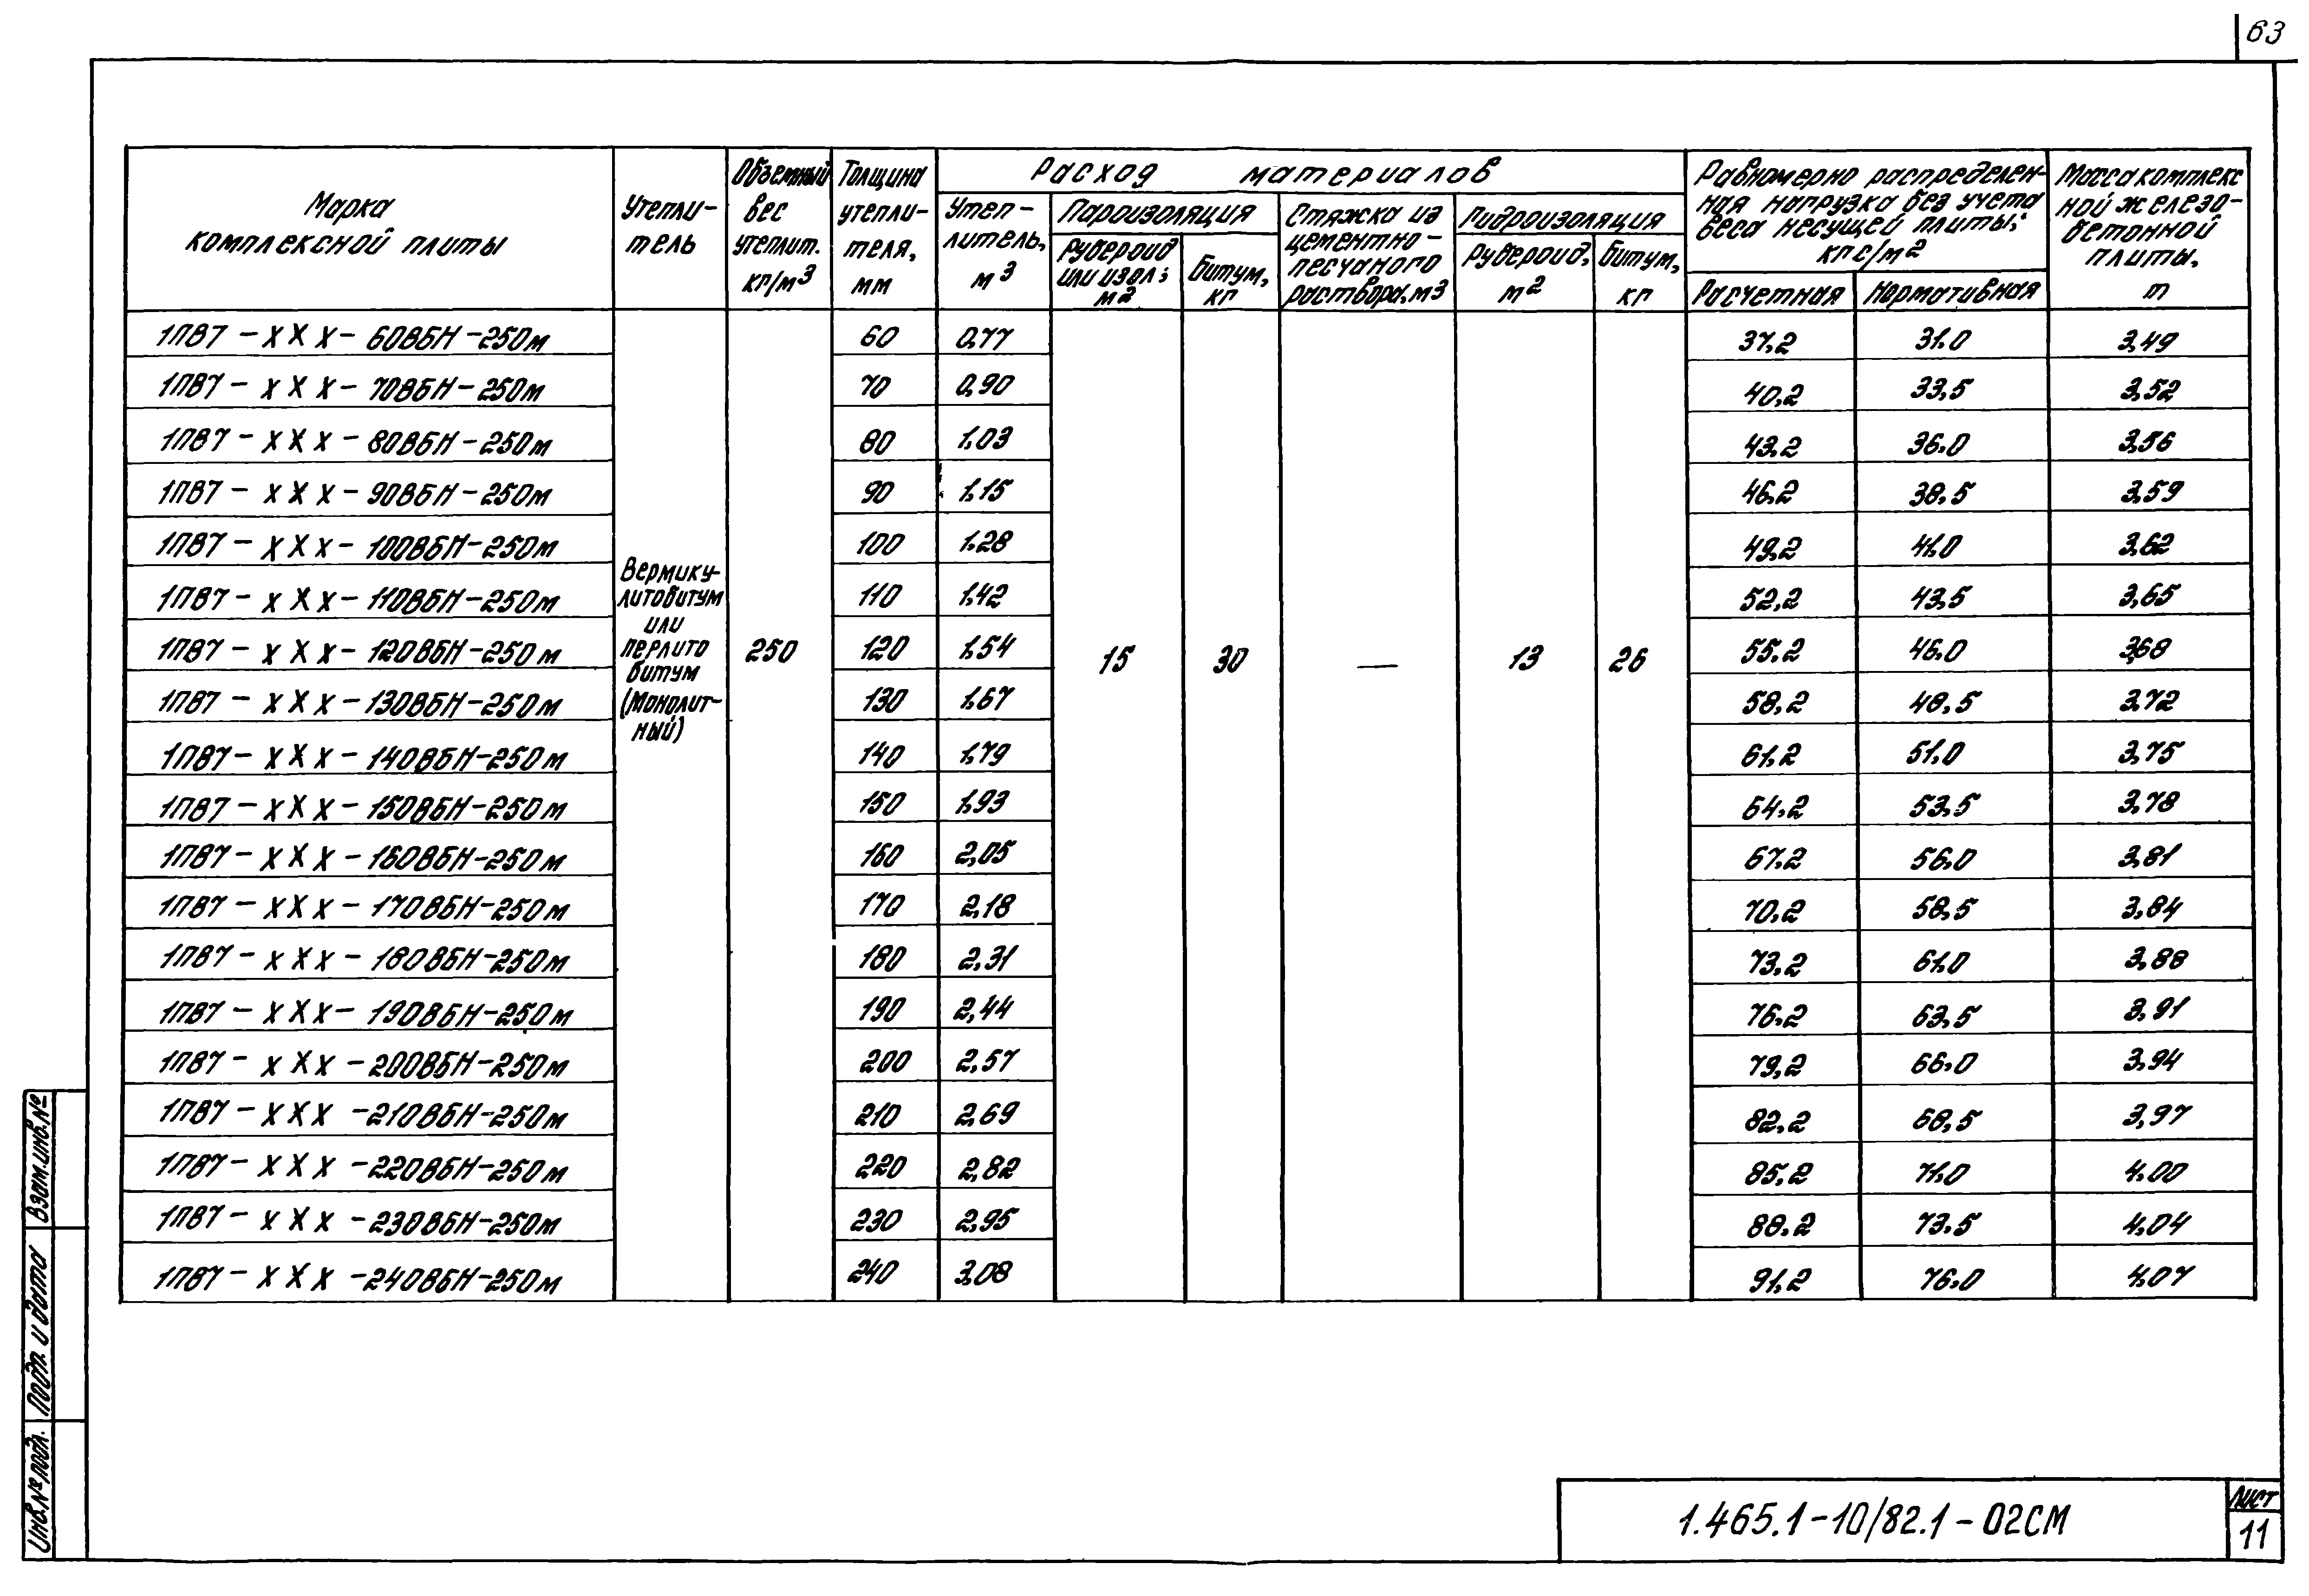 63
Марка
комплексной плиты
Утепли-
тель
Объемный
вес
утеплит.
кг/м3
Толщина
утепли-
теля,
мм
Расход материалов
Утеп-
литель,
м3
Пароизоляция
Рубероид
или изол;
м2
Битум,
кг
Стяжка из
цементно-
песчаного
раствора, м3
Гидроизоляция
Рубероид,
м2
Битум,
кг
Равномерно распределен-
ная нагрузка без учета
веса несущей плиты;
кгс/м2
Расчетная
Нормативная
Масса комплекс
ной железо-
бетонной
плиты,
т
1ПВ7-хХх-60ВБН-250м 60 0,77 37,2 31,0 3,49
1ПВ7-хХх-70ВБН-250м 70 0,90 40,2 33,5 3,52
1ПВ7-хХх-80ВБН-250м 80 1,03 43,2 36,0 3,56
1ПВ7-хХх-90ВБН-250м 90 1,15 46,2 38,5 3,59
1ПВ7-хХх-100ВБН-250м 100 1,28 49,2 41,0 3,62
1ПВ7-хХх-110ВБН-250м 110 1,42 52,2 43,5 3,65
1ПВ7-хХх-120ВБН-250м 120 1,54 55,2 46,0 3,68
1ПВ7-хХх-130ВБН-250м 130 1,67 58,2 48,5 3,72
1ПВ7-хХх-140ВБН-250м 140 1,79 61,2 51,0 3,75
1ПВ7-хХх-150ВБН-250м 150 1,93 64,2 53,5 3,78
1ПВ7-хХх-160ВБН-250м 160 2,05 67,2 56,0 3,81
1ПВ7-хХх-170ВБН-250м 170 2,18 70,2 58,5 3,84
1ПВ7-хХх-180ВБН-250м 180 2,31 73,2 61,0 3,88
1ПВ7-хХх-190ВБН-250м 190 2,44 76,2 63,5 3,91
1ПВ7-хХх-200ВБН-250м 200 2,57 79,2 66,0 3,94
1ПВ7-хХх-210ВБН-250м 210 2,69 82,2 68,5 3,97
1ПВ7-хХх-220ВБН-250м 220 2,82 85,2 71,0 4,00
1ПВ7-хХх-230ВБН-250м 230 2,95 88,2 73,5 4,04
1ПВ7-хХх-240ВБН-250м 240 3,08 91,2 76,0 4,07
Вермику-
литобитум
или
перлито
битум
(монолит-
ный)
250
15
30
—
13
26
Взам.инв.№
Подп. и дата
Инв.№ подл.
1.465.1-10/82.1-02СМ
Лист
11